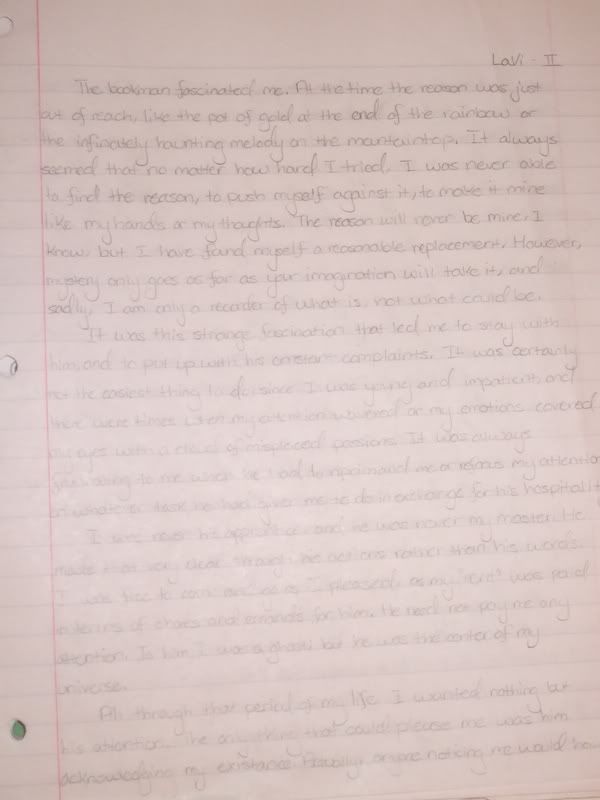 Lavi - II
The bookman fascinated me. At the time the reason was just
out of reach, like the pot of gold at the end of the rainbow or
the infinately haunting melody on the mountaintop. It always
seemed that no matter how hard I tried, I was never able
to find the reason, to push myself against it, to make it mine
like my hands or my thoughts. The reason will never be mine, I
know, but I have found myself a reasonable replacement. However,
mystery only goes as far as your imagination will take it, and
sadly, I am only a recorder of what is, not what could be.
It was this strange fascination that led me to stay with
him, and to put up with his constant complaints. It was certainly
not the easiest thing to do, since I was young and impatient, and
there were times when my attention wavered or my emotions covered
my eyes with a cloud of misplaced passions. It was always
to me when he had to reprimand me or refocus my attention
on whatever task he had given me to do in exchange for his hospitality
I was never his apprentice and he was never my master. He
made that very clear through his actions rather than his words.
I was free to come and go as I pleased, as my "rent" was paid
in terms of chores and errands for him. He need not pay me any
attention. To him I was a ghost, but he was the center of my
universe.
All through that period of my life I wanted nothing but
his attention. The only thing that could please me was him
acknowledging my existance. Actually, anyone noticing me would have